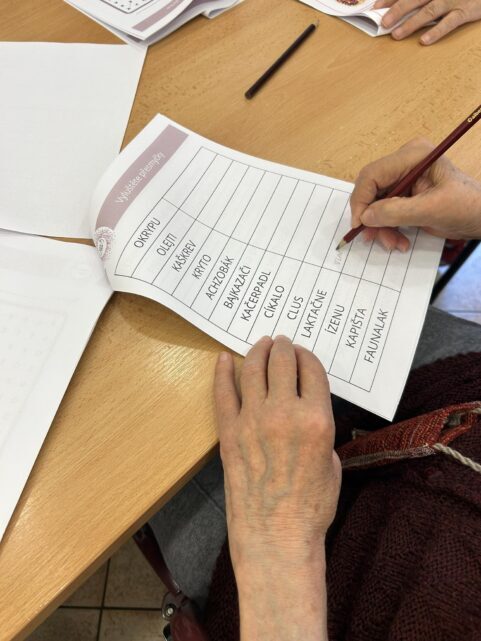 Vyluštěte přesmyčky
OKRYPU
OLEJTI
KAŠKREV
KRYTO
ACHZOBÁK
BAJKAZAČÍ
KAČERPADL
CÍKALO
CLUS
LAKTAČNE
ÍZENU
KAPIŠTA
FAUNALAK